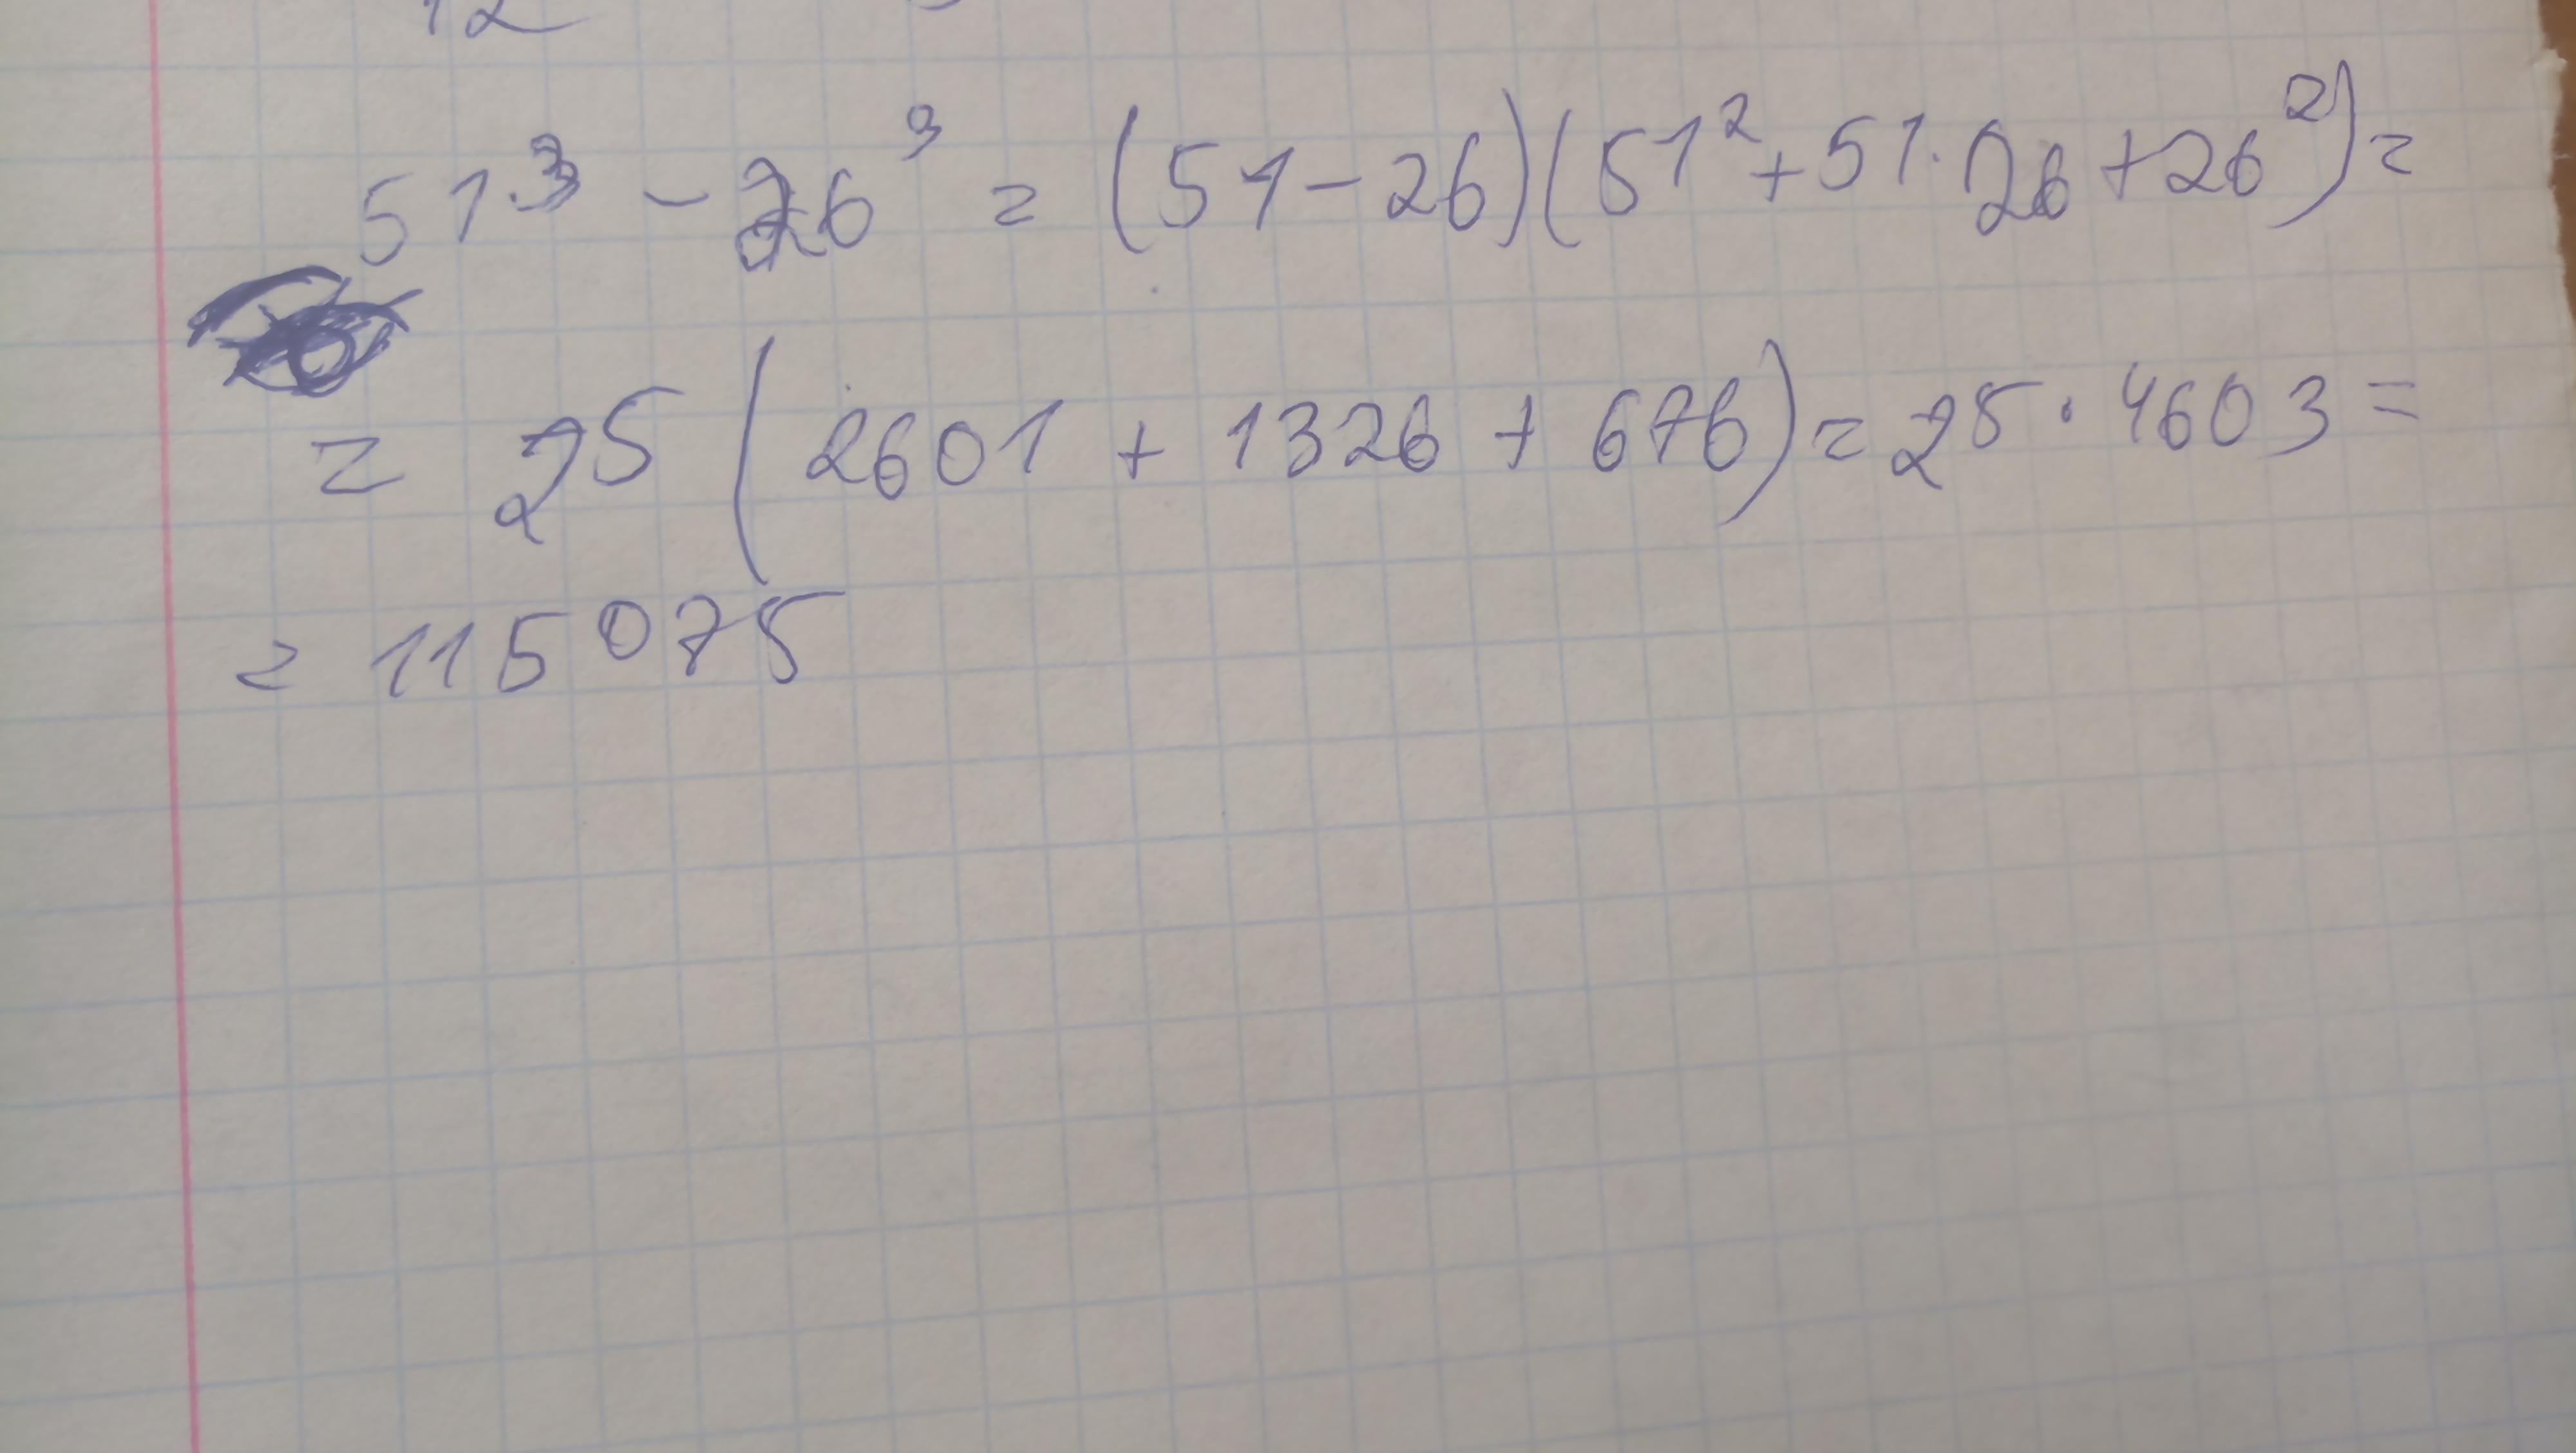 12
51³ - 26³ = (51-26)(51²+51·26+26²)=
= 25 (2601 + 1326 + 676) = 25·4603=
= 115075